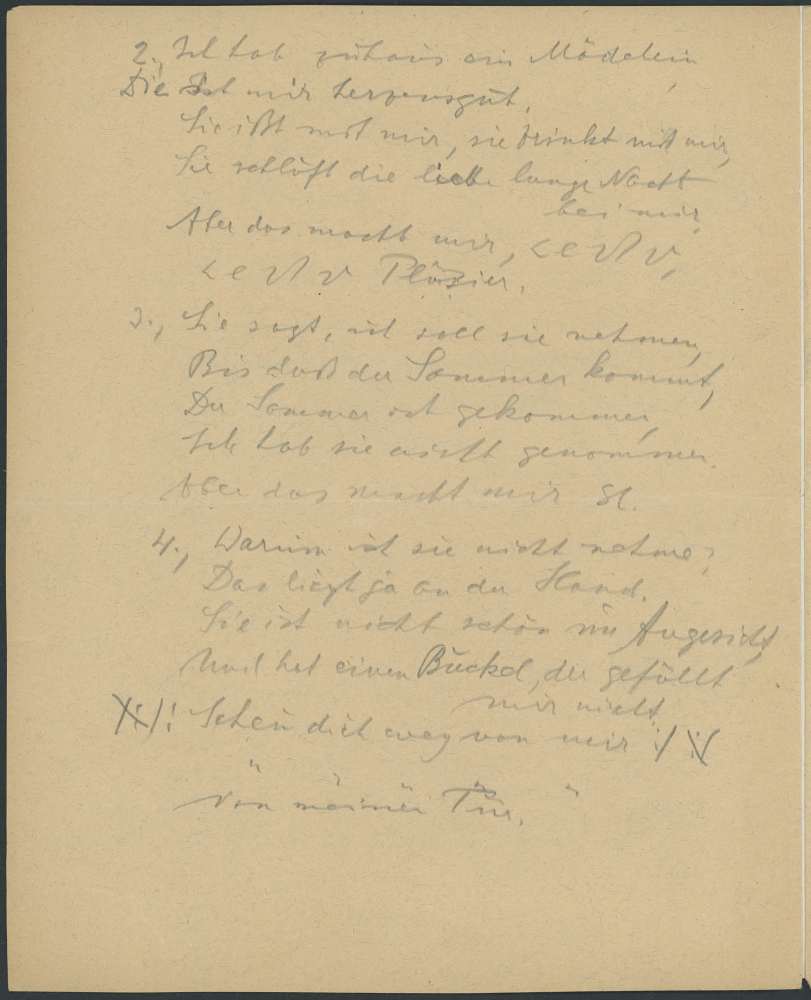 2., Ich hab zuhaus ein Mädelein,
Die ist mir herzensgut.
Sie ißt mit mir, sie trinkt mit mir,
Sie schläft die liebe lange Nacht
bei mir,
Aber das macht mir,
Pläsier.
3., Sie sagt, ich soll sie nehmen,
Bis daß der Sommer kommt,
Der Sommer ist gekommen,
Ich hab sie nicht genommen.
Aber das macht mir
4., Warum ich sie nicht nehme?
Das liegt ja an der Hand.
Sie ist nicht schön im Angesicht,
Und hat einen Buckel, der gefällt
mir nicht
/:/: Scheu dich weg von mir :/ :/
" " " " "
von meiner Tür.